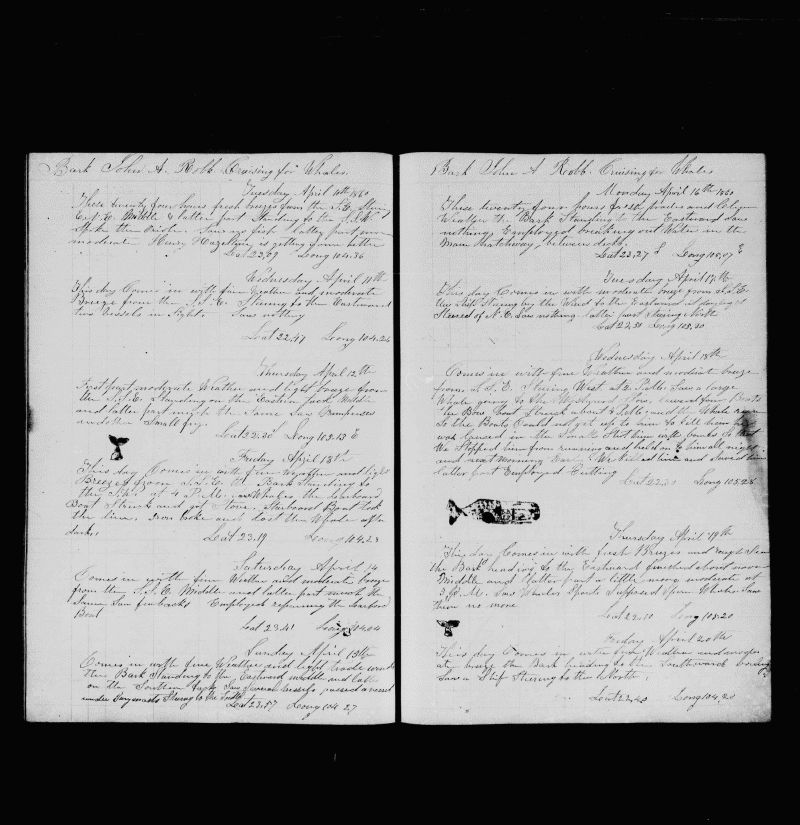 Bark John A. Robb Cruising for Whales
Tuesday April 10th 1860
These twenty four hours fresh breeze from the S.E. Stering
E.N.E. Middle & latter part Standing to the S.S.W.
Spoke the
moderate Henry Hazeltine is getting some better
Lat 23,09 Long 104.36
Wednesday April 11th
This day Comes in with fine Weather and moderate
Breeze from the S.S.E. Stering to the Eastward
two vessels in sight. Saw nothing
Lat 22,47 Long 104.26
Thursday April 12th
First part moderate Weather and light breeze from
the S.S.E. Standing on the Eastern tack Middle
and latter part much the Same Saw Grampuses
and other Small fry.
Lat 22.20 Long 103.13 E
Friday April 13th
This day Comes in with fine Weather and light
Breeze from S.S.E. the Bark Standing to
the S.W. at 4 P.M. Saw Whales the larboard
Boat Struck and got Stove, Starboard Boat took
the line, Iron broke and lost the Whale after
dark.
Lat 23.19 Long 104.23
Saturday April 14
Comes in with fine Weather and moderate breeze
from the S.S.E. Middle and latter part much the
Same Saw finbacks Employed repairing the larboard
Boat
Lat 23.41 Long 104.04
Sunday April 15th
Comes in with fine Weather and light trade winds
the Bark Standing to the Eastward middle and latter
on the Southern tack Saw Several vessels, passed a vessel
under Easy sails Stering to the South
Lat 23.57 Long 104 27
Bark John A Robb. Cruising for Whales
Monday April 16th 1860
These twenty four hours fresh trades and Clear
Weather the Bark Standing to the Eastward Saw
nothing Employed breaking out Water in the
Main Hatchway, between decks.
Lat 23,27 S Long 105,07 E
Tuesday April 17th
This day Comes in with moderate breeze from S.S.E.
the Ship Stering by the Wind to the Eastward at daylight
Steered of N.E. Saw nothing latter part Stering North
Lat 22,51 Long 105,20
Wednesday April 18th
Comes in with fine Weather and moderate breeze
from S.S.E. Stering West at 2 P.M. Saw a large
Whale going to the Westward Slow, lowered four Boats
the Bow boat Struck about 3 P.M. and the Whale ran
So the Boats Could not get up to him to kill him he
was lanced in the Small Shot him with bombs So that
We Stopped him from running and held on to him all night
and next morning Early We killed him and Saved him
latter part Employed Cutting
Lat 22.21 Long 105.26
Thursday April 19th
This day Comes in with fresh Breezes and rough Sea
the Bark heading to the Eastward finished about noon
Middle and latter part a little more moderate at
3 P.M. Saw Whales Spouts Supposed Sperm Whales Saw
them no more
Lat 22.30 Long 105.20
Friday April 20th
This day Comes in with fine Weather and moder-
ate breeze the Bark heading to the Southward
Saw a Ship Stering to the North.
Lat 22,40 Long 104,20